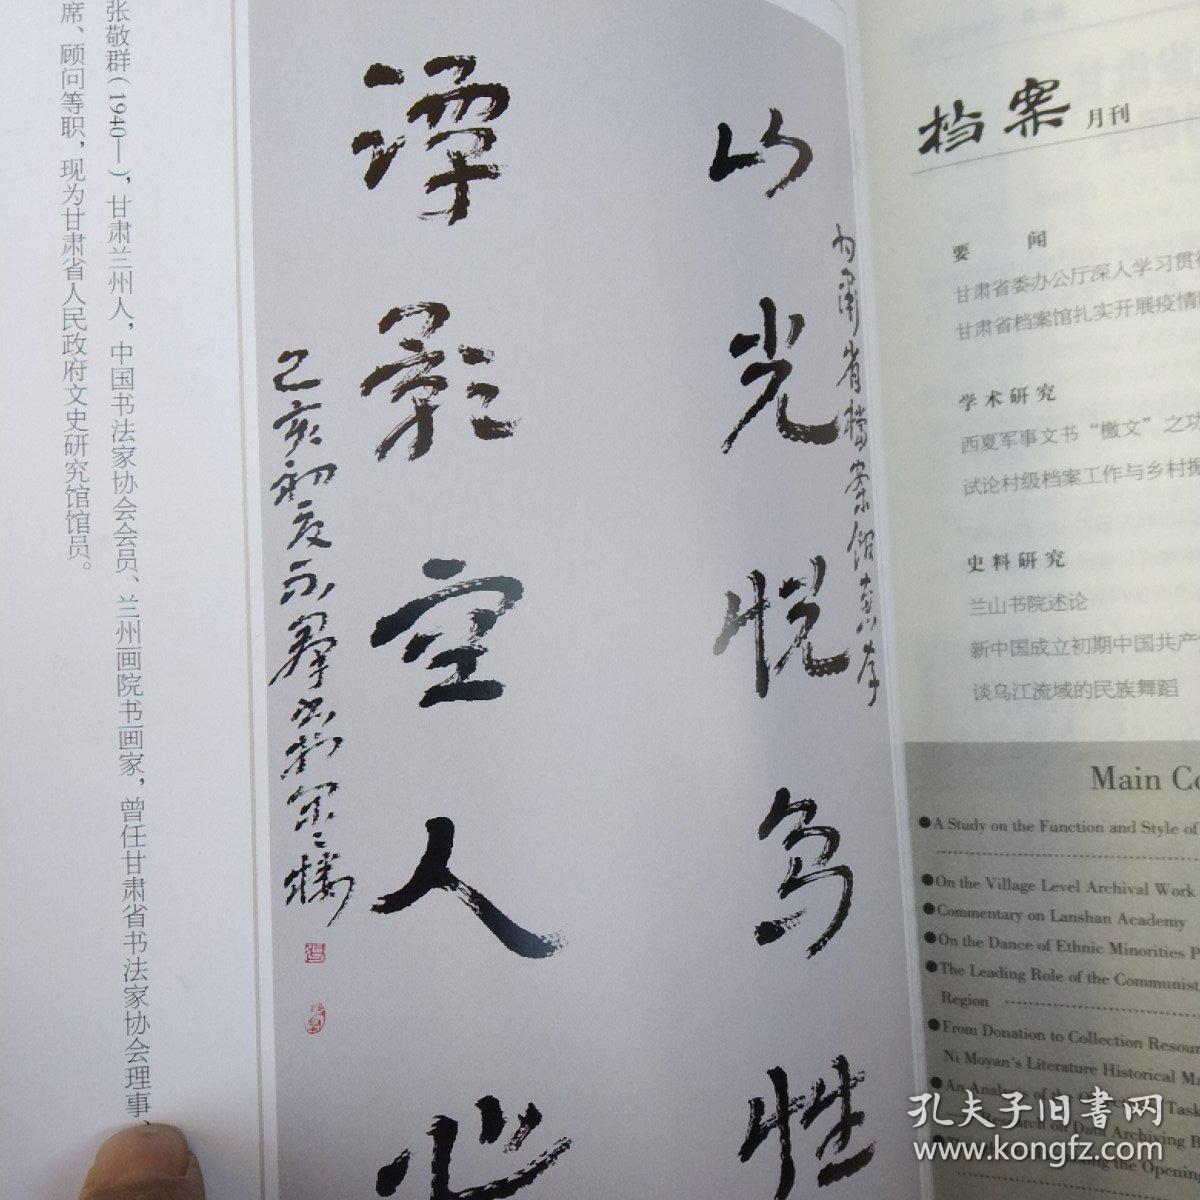 张敬群（1940—），甘肃兰州人，中国书法家协会会员、兰州画院书画家，曾任甘肃省书法家协会理事、
席、顾问等职，现为甘肃省人民政府文史研究馆馆员。
山光悦鸟性
潭影空人心
档案 月刊
要 闻
甘肃省委办公厅深入学习贯
甘肃省档案馆扎实开展疫情
学术研究
西夏军事文书“檄文”之功
试论村级档案工作与乡村振
史料研究
兰山书院述论
新中国成立初期中国共产
谈乌江流域的民族舞蹈
Main Co
●A Study on the Function and Style of
●On the Village Level Archival Work
●Commentary on Lanshan Academy
●On the Dance of Ethnic Minorities
●The Leading Role of the Communist
Region
●From Donation to Collection
Ni Moyan's Literature Historical
孔夫子旧书网
www.kongfz.com